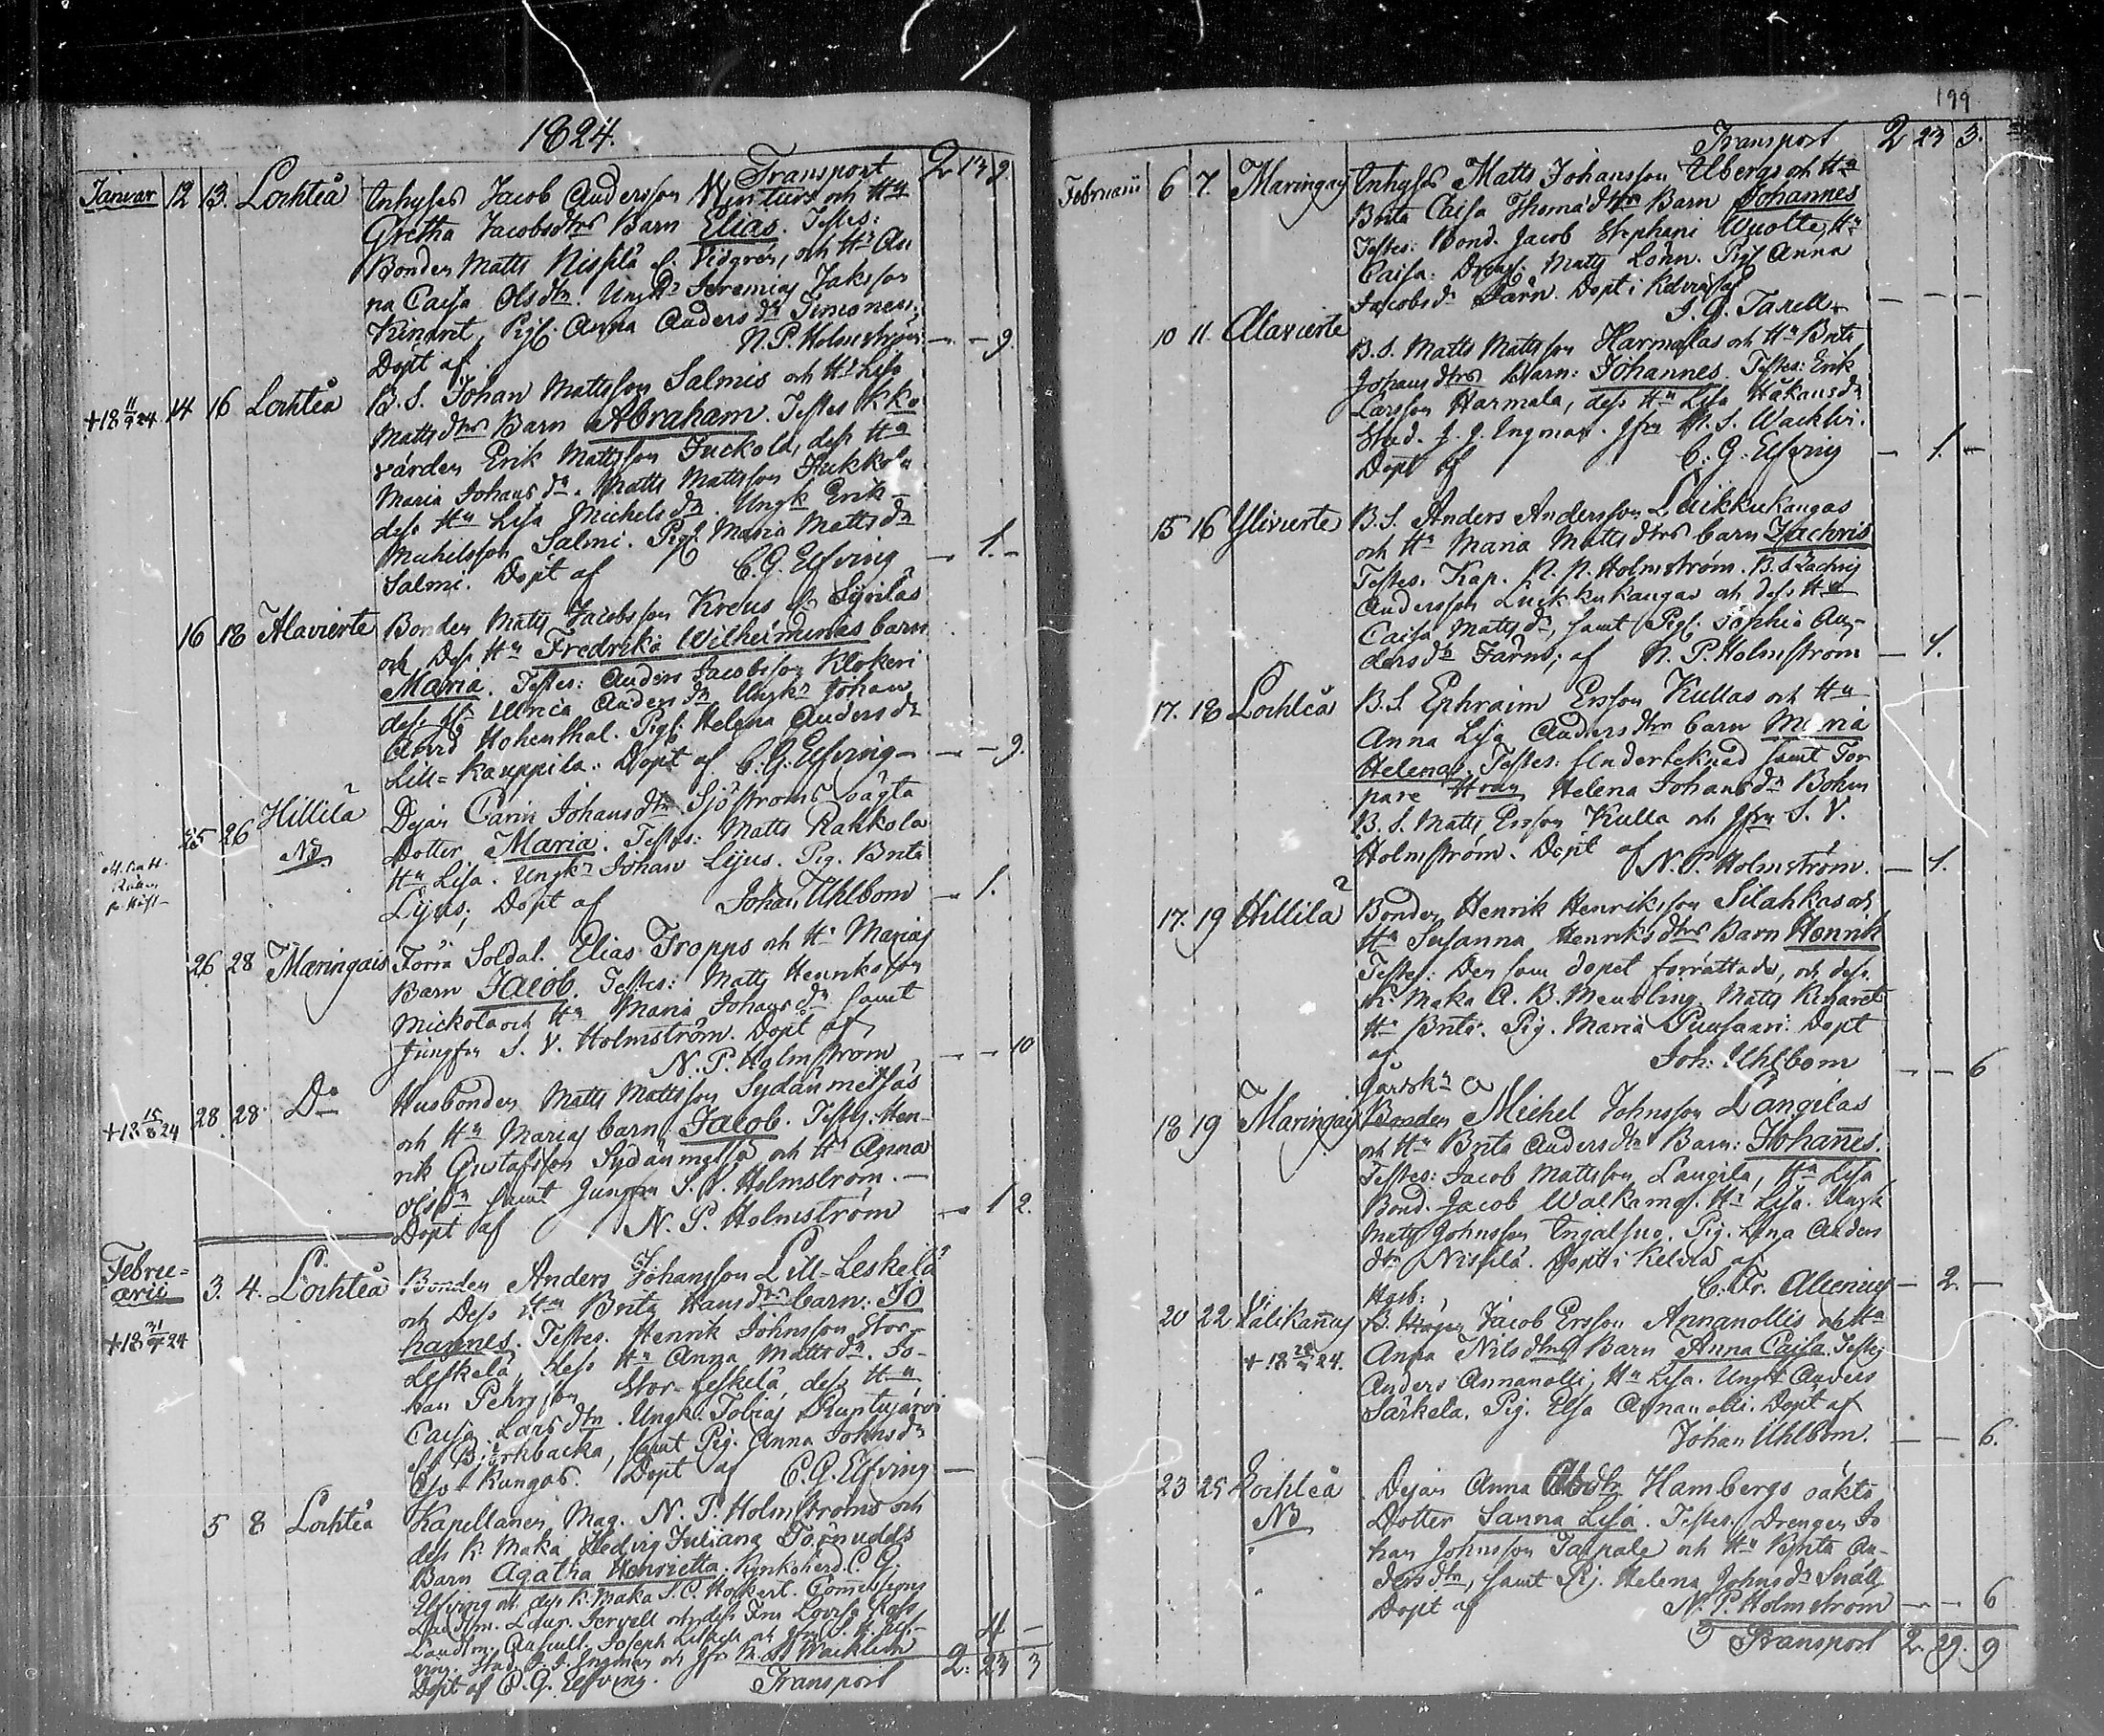 1824.
Transport 2 13 9.
Januar 12 13. Lochteå Inhyses Jacob Andersson Wynturs och Hu
Gretha Jacobsdtrs Barn Elias. Testes:
Bonden Matts Nissilä Hu An
na Caisa Olsdtr. Ungk: Jeremias Jaksson
Pig: Anna Andersdr
Dopt af N. P. Holmström — — 9.
+18 11/9 24 14 16 Lochteå B. S. Johan Mattsson Salmis och Hu Lisa
Mattsdtrs Barn Abraham. Testes Kko
värden Erik Mattsson Juckola, dess Hu
Maria Johansdr. Matts Mattsson Jukkola
dess Hu Lisa Michelsdr. Ungk Erik
Michelsson Salmi. Pig: Maria Mattsdr
Salmi. Dopt af C. G. Elfving — 1. —
16 18 Alavierte Bonden Matts Jacobsson Kreus Syrilas
och Dess Hu Fredrika Wilhelminas barn
Maria. Testes: Anders Jacobsson Klokeri
dess Hu Ulrica Andersdr Ungkr Johan
Hohenthal. Pig: Helena Andersdr
Lill-Kauppila. Dopt af C. G. Elfving — — 9.
25 26 Hillilä Dejan Carin Johansdtr Sjöströms oägta
NB Dotter Maria. Testes: Matts Rahkola
Hu Lisa. Ungkr Johan Lijus. Pig. Brita
Lijus; Dopt af Johan Uhlbom — 1.
26. 28 Maringais Förra Soldat. Elias Tropps och Hu Marias
Barn Jacob. Testes: Matts Henriksson
Mickola och Hu Maria Johansdr samt
Jungfru S. V. Holmström. Dopt af
N. P. Holmström — — 10
+18 15/8 24 28. 28. Do Husbonden Matts Mattsson Sydänmetsäs
och Hu Marias barn Jacob. Testes. Hen-
rik Gustafsson Sydänmetsä och Hu Anna
Olsdr samt Jungfru S. V. Holmström. —
Dopt af N. P. Holmström — 1 2.
Febru-
arii 3. 4. Lochteå Bonden Anders Johansson Lill-Leskelä
och Dess Hu Brita Hansdtrs barn: Jo
+18 31/ 24 hannes. Testes. Henrik Johnsson Stor-
Leskelä, dess Hu Anna Mattsdr. Jo-
han Pehrsson Stor-Leskelä, dess Hu
Caisa Larsdtr. Ungk. Tobias Runtujärvi
Björkbacka, samt Pig. Anna Johnsdr
Kangas. Dopt af C. G. Elfving —
5 8 Lochteå Kapellanen Mag. N. P. Holmströms och
dess K. Maka Hedvig Juliana Törnudds
Barn Agatha Henrietta. Kyrkoherd. C. G.
Elfving och dess K. Maka S. C. Hockert.
4 —
N. S. Wacklin
Dopt af C. G. Elfving. Transport 2: 23 3
199
Transport 2 23 3.
Februarii 6 7. Maringais Inhyses Matts Johansson Ahlbergs och Hu
Brita Caisa Thomædtrs Barn Johannes
Testes: Bond. Jacob Stephani Wuolte, Hu
Caisa: Dreng: Matts Lönn. Pig Anna
Jacobsdr Färm. Dopt i Kelviå af
— — —
10 11. Alavierte B. S. Matts Mattsson Harmalas och Hu Brita
Johansdtrs Barn: Johannes. Testes: Erik
Larsson Harmala, dess Hu Lisa Håkansdr
Stud. J. J. Ingman. Jfru N. S. Wacklin.
Dopt af C. G. Elfving — 1. —
15 16 Ylivierte B. S. Anders Andersson Luikkukangas
och Hu Maria Mattsdtrs barn Zachris
Testes. Kap. N. P. Holmström. B. S. Zachris
Andersson Luikkukangas och dess Hu
Caisa Mattsdr, samt Pig: Sophia An-
dersdr Färm; af N. P. Holmström — 1.
17. 18 Lochteå B. S. Ephraim Ersson Kullas och Hu
Anna Lisa Andersdtrs barn Maria
Helena. Testes: Undertecknad samt Tor
pare Helena Johansdr Böhm
B. S. Matts Ersson Kulla och Jfru S. V.
Holmström. Dopt af N. P. Holmström. — 1.
17. 19 Hillilä Bonden Henrik Henriksson Silahkas och
Hu Susanna Henriksdtrs Barn Henrik
Testes: Den som dopet förrättade, och dess
K. Maka A. B. Meurling. Matts
Hu Brita. Pig. Maria Puusaari. Dopt
af Joh: Uhlbom — — 6
18 19 Maringais Bonden Michel Johnsson Langilas
och Hu Brita Andersdtrs Barn: Johannes.
Testes: Jacob Mattsson Langila, Hu Lisa
Bond. Jacob Walkama. Hu Lisa. Ungk
Matts Johnsson Ingalsuo. Pig. Lena Anders
dtr Nissilä. Dopt i Kelviå af
C. Fr. Alcenius — 2. —
20 22 Välikannus Jacob Ersson Annanollis och Hu
+18 24. Anna Nilsdtrs Barn Anna Caisa. Testes
Anders Annanolli, Hu Lisa. Ungk Anders
Särkelä. Pig. Elsa Annanolli. Dopt af
Johan Uhlbom. — — 6.
23 25 Lochteå Dejan Anna Hambergs oäkta
NB Dotter Sanna Lisa. Testes. Drengen Jo
han Johnsson Taipale och Hu Brita An-
dersdtr, samt Pig. Helena Johnsdr Snäll
Dopt af N. P. Holmström — — 6
Transport 2. 29. 9